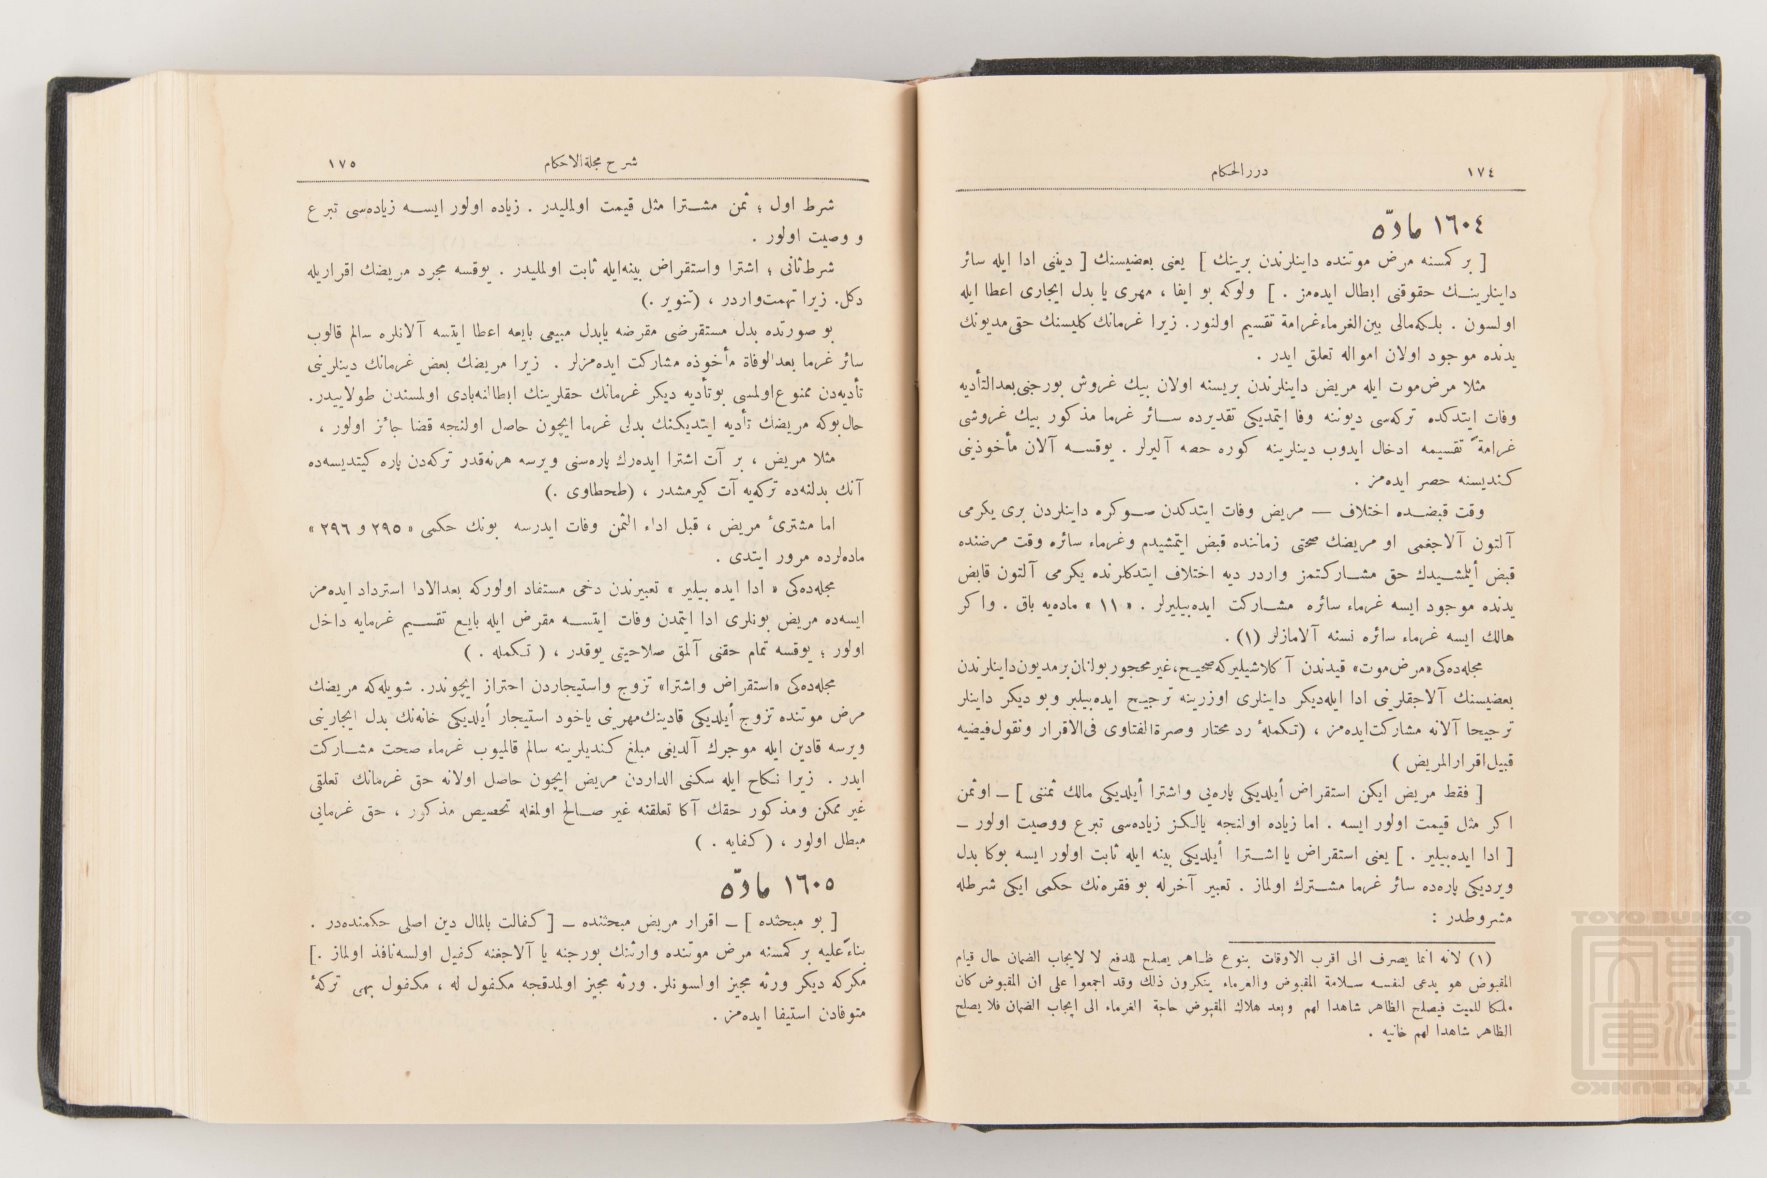 ١٧٤
دررالحكام
١٦٠٤ مادّه
[ بر كمسنه مرض موتنده داينلرندن برينك ] يعنی بعضيسنك [ دينی ادا ايله سائر
داينلرينك حقوقنی ابطال ايده‌مز . ] ولوكه بو ايفا ، مهری يا بدل ايجاری اعطا ايله
اولسون . بلكه‌مالی بين‌الغرماءغرامة تقسيم اولنور. زيرا غرمانك كليسنك حق‌مديونك
يدنده موجود اولان امواله تعلق ايدر .
مثلا مرض‌موت ايله مريض داينلرندن بريسنه اولان بيك غروش بورجنی‌بعدالتأديه
وفات ايتدكده تركه‌سی ديوننه وفا ايتمديكی تقديرده سائر غرما مذكور بيك غروشی
غرامةً تقسيمه ادخال ايدوب دينلرينه كوره حصه آليرلر . يوقسه آلان مأخوذينی
كنديسنه حصر ايده‌مز .
وقت قبضده اختلاف — مريض وفات ايتدكدن صوكره داينلردن بری يكرمی
آلتون آلاجغمی او مريضك صحتی زماننده قبض ايتمشيدم وغرماء سائره وقت مرضنده
قبض أيلمشيدك حق مشاركتمز واردر ديه اختلاف ايتدكلرنده يكرمی آلتون قابض
يدنده موجود ايسه غرماء سائره مشاركت ايده‌بيليرلر . « ١١ » ماده‌يه باق . واكر
هالك ايسه غرماء سائره نسنه آلامازلر (١) .
مجله‌ده‌كی«مرض‌موت» قيدندن آكلاشيليركه‌صحيح،غيرمحجوربولنان‌برمديون‌داينلرندن
بعضيسنك آلاجقلرينی ادا ايله‌ديكر داينلری اوزرينه ترجيح ايده‌بيلير وبو ديكر داينلر
ترجيحا آلانه مشاركت‌ايده‌مز ، (تكملهٔ رد محتار وصرةالفتاوی فی‌الاقرار ونقول‌فيضيه
قبيل‌اقرارالمريض )
[ فقط مريض ايكن استقراض أيلديكی پاره‌يی واشترا أيلديكی مالك ثمننی ] ــ اوثمن
اكر مثل قيمت اولور ايسه . اما زياده اولنجه يالكز زياده‌سی تبرع ووصيت اولور ــ
[ ادا ايده‌بيلير . ] يعنی استقراض يا اشترا أيلديكی بينه ايله ثابت اولور ايسه بوكا بدل
ويرديكی پاره‌ده سائر غرما مشترك اولماز . تعبير آخرله بو فقره‌نك حكمی ايكی شرطله
مشروطدر :
(١) لانه انما يصرف الى اقرب الاوقات بنوع ظاهر يصلح للدفع لا لايجاب الضمان حال قيام
المقبوض هو يدعى لنفسه سلامة المقبوض والغرماء ينكرون ذلك وقد اجمعوا على ان المقبوض كان
ملكا للميت فيصلح الظاهر شاهدا لهم وبعد هلاك المقبوض حاجة الغرماء الى ايجاب الضمان فلا يصلح
الظاهر شاهدا لهم خانيه .
شرح مجلةالاحكام
١٧٥
شرط اول ؛ ثمن مشترا مثل قيمت اولمليدر . زياده اولور ايسه زياده‌سی تبرع
و وصيت اولور .
شرط‌ثانی ؛ اشترا واستقراض بينه‌ايله ثابت اولمليدر . يوقسه مجرد مريضك اقراريله
دكل. زيرا تهمت‌واردر ، (تنوير .)
بو صورتده بدل مستقرضی مقرضه يابدل مبيعی بايعه اعطا ايتسه آلانلره سالم قالوب
سائر غرما بعدالوفاة مأخوذه مشاركت ايده‌مزلر . زيرا مريضك بعض غرمانك دينلرينی
تأديه‌دن ممنوع‌اولمسی بوتأديه ديكر غرمانك حقلرينك ابطالنه‌بادی اولمسندن طولاييدر.
حال‌بوكه مريضك تأديه ايتديكنك بدلی غرما ايچون حاصل اولنجه قضا جائز اولور ،
مثلا مريض ، بر آت اشترا ايده‌رك پاره‌سنی ويرسه هرنه‌قدر تركه‌دن پاره كيتديسه‌ده
آنك بدلنه‌ده تركه‌يه آت كيرمشدر ، (طحطاوی .)
اما مشتریٔ مريض ، قبل اداء الثمن وفات ايدرسه بونك حكمی « ٢٩٥ و ٢٩٦ »
ماده‌لرده مرور ايتدی .
مجله‌ده‌كی « ادا ايده بيلير » تعبيرندن دخی مستفاد اولوركه بعدالادا استرداد ايده‌مز
ايسه‌ده مريض بونلری ادا ايتمدن وفات ايتسه مقرض ايله بايع تقسيم غرمايه داخل
اولور ؛ يوقسه تمام حقنی آلمق صلاحيتی يوقدر ، ( تكمله . )
مجله‌ده‌كی «استقراض واشترا» تزوج واستيجاردن احتراز ايچوندر. شويله‌كه مريضك
مرض موتنده تزوج أيلديكی قادينك‌مهرينی ياخود استيجار أيلديكی خانه‌نك بدل ايجارينی
ويرسه قادين ايله موجرك آلديغی مبلغ كنديلرينه سالم قالميوب غرماء صحت مشاركت
ايدر . زيرا نكاح ايله سكنی الداردن مريض ايچون حاصل اولانه حق غرمانك تعلقی
غير ممكن ومذكور حقك آكا تعلقنه غير صالح اولمغله تخصيص مذكور ، حق غرمايی
مبطل اولور ، ( كفايه . )
١٦٠٥ مادّه
[ بو مبحثده ] ــ اقرار مريض مبحثنده ــ [ كفالت بالمال دين اصلی حكمنده‌در .
بناءًعليه بر كمسنه مرض موتنده وارثنك بورجنه يا آلاجغنه كفيل اولسه‌نافذ اولماز .]
مگركه ديكر ورثه مجيز اولسونلر. ورثه مجيز اولمدقجه مكفول له ، مكفول بهی تركهٔ
متوفادن استيفا ايده‌مز .
TOYO BUNKO